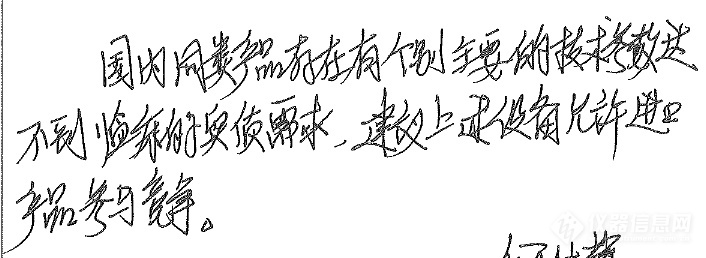 国内同类产品存在有个别主要的技术参数达
不到临床的实际需求，建议上述设备允许进口
产品参与竞争。
仪器信息网